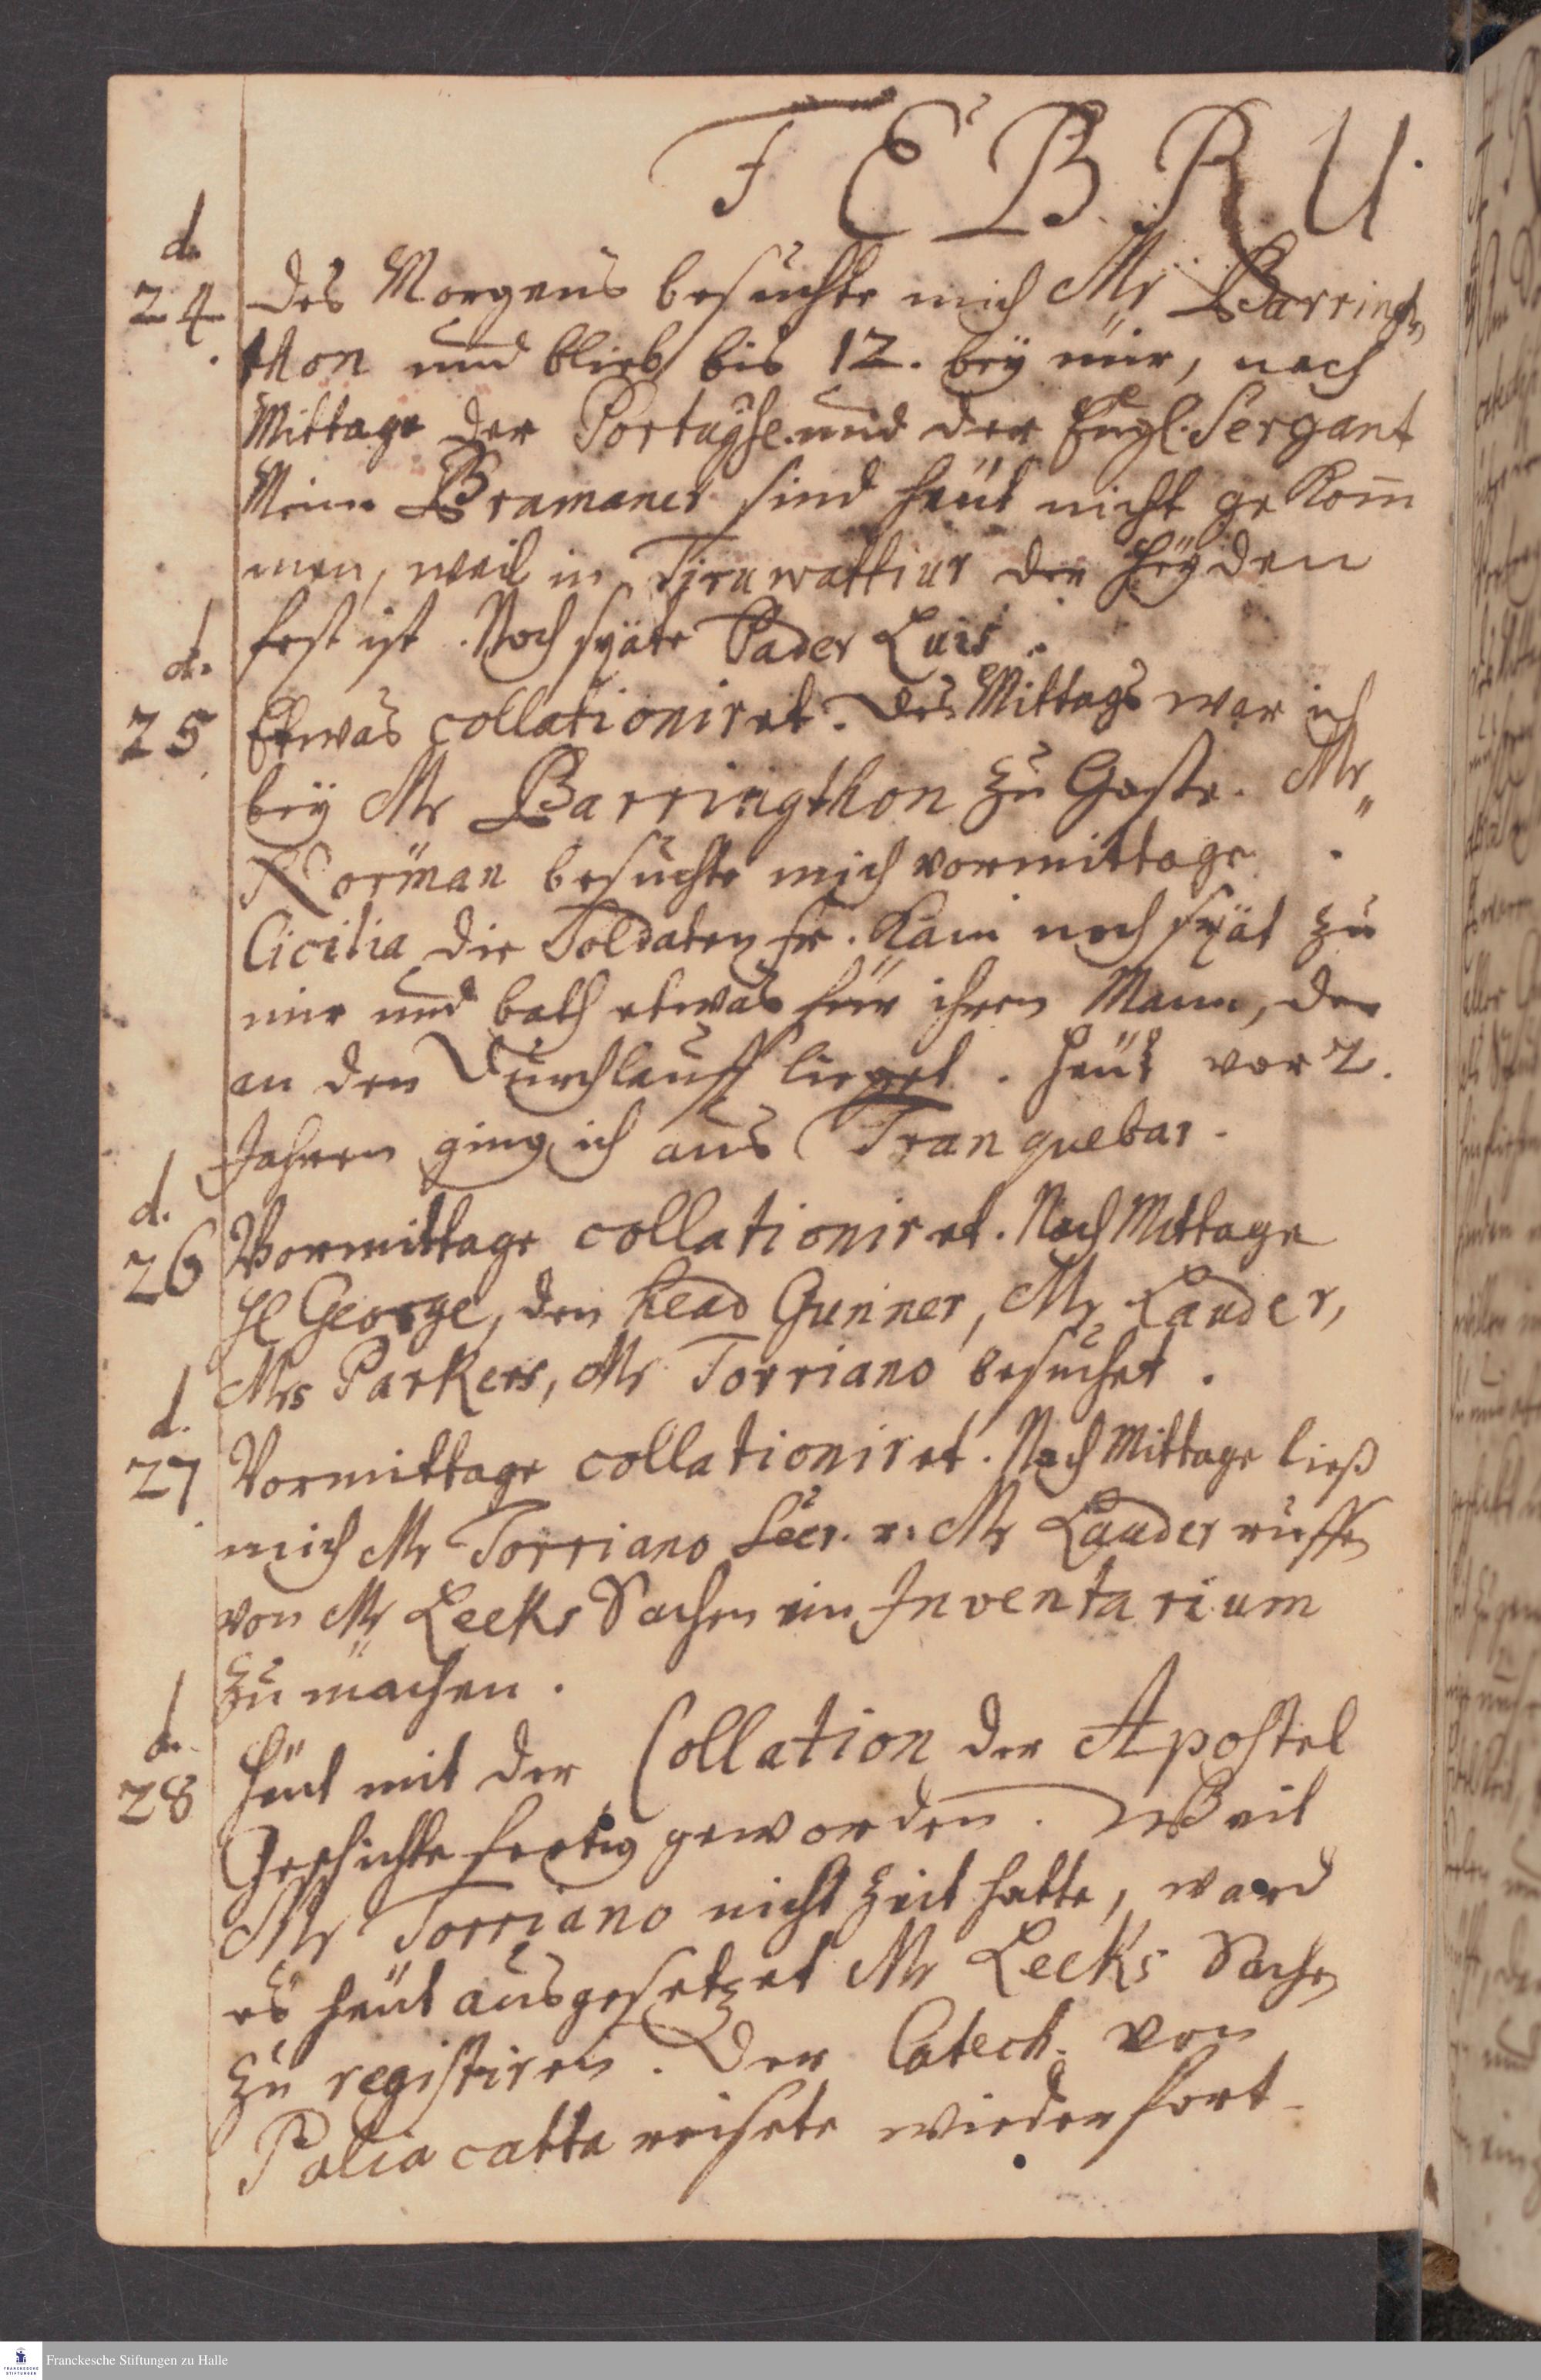 FEBRU.
d. 24. Des Morgens besuchte mich Mr Barring
thon und blieb bis 12. bey mir, nach
Mittage der Portugise und der Engl. Sergant
Meine Bramaner sind heut nicht gekom̅
men, weil in Tiruwattiur der Heyden
fest ist. Noch späte Pader Luis.
d. 25 Etwas collationiret. Des Mittags war ich
bey Mr Barringthon zu Gaste. Mr
Norman besuchte mich vormittage.
Cicilia die Soldaten fr. kam noch spät zu
mir und bath etwas für ihren Mann, der
an den Durchlauff lieget. Heut vor 2.
Jahren ging ich aus Tranquebar.
d. 26 Vormittage collationiret. Nach Mittage
H George, den head Gunner, Mr Lauder,
Mrs Parkers, Mr Torriano besuchet.
d. 27. Vormittage collationiret. Nach Mittage ließ
mich Mr Torriano Secr. u: Mr Lauder ruffen
von Mr Leeks Sachen ein Inventarium
zu machen.
d. 28 Heut mit der Collation der Apostel
Geschichte fertig geworden. Weil
Mr Torriano nicht Zeit hatte, ward
es heut ausgesetzet Mr Leeks Sachen
zu registiren. Der Catech. von
Paliacatta reisete wieder fort.
Franckesche Stiftungen zu Halle